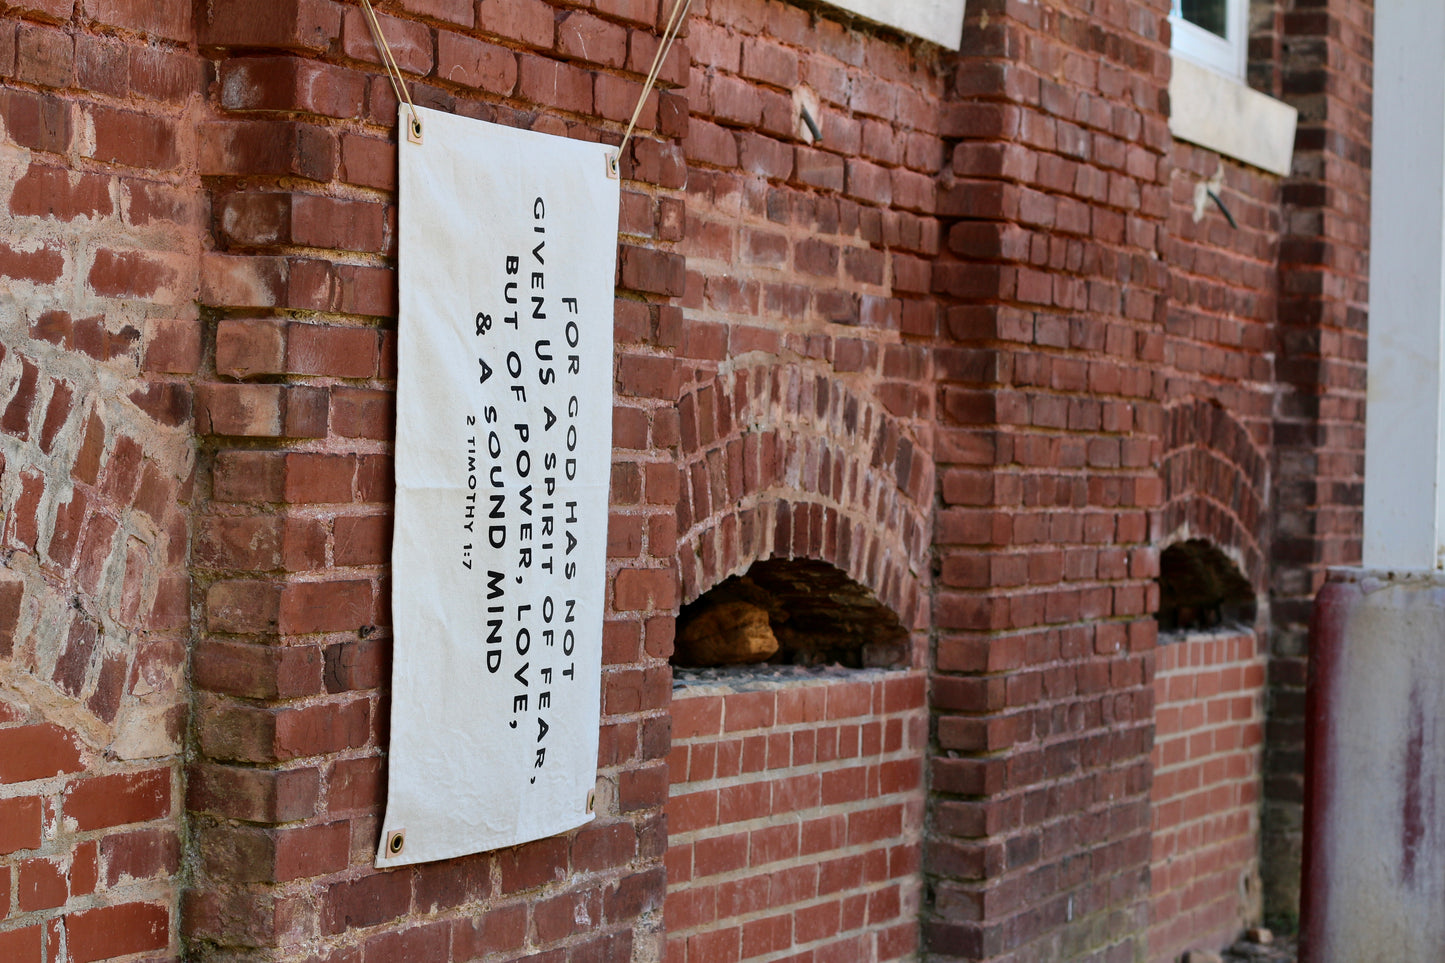 FOR GOD HAS NOT
GIVEN US A SPIRIT OF FEAR,
BUT OF POWER, LOVE,
& A SOUND MIND
2 TIMOTHY 1:7